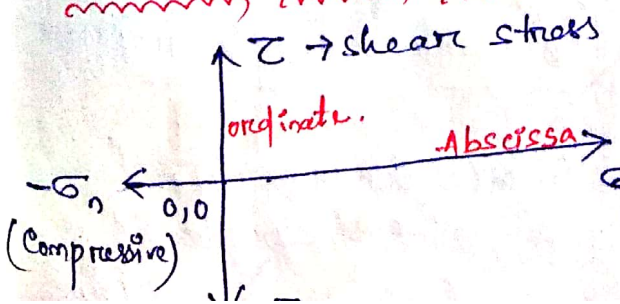 τ → shear stress
ordinate.
Abscissa
-σn
0,0
(Compressive)